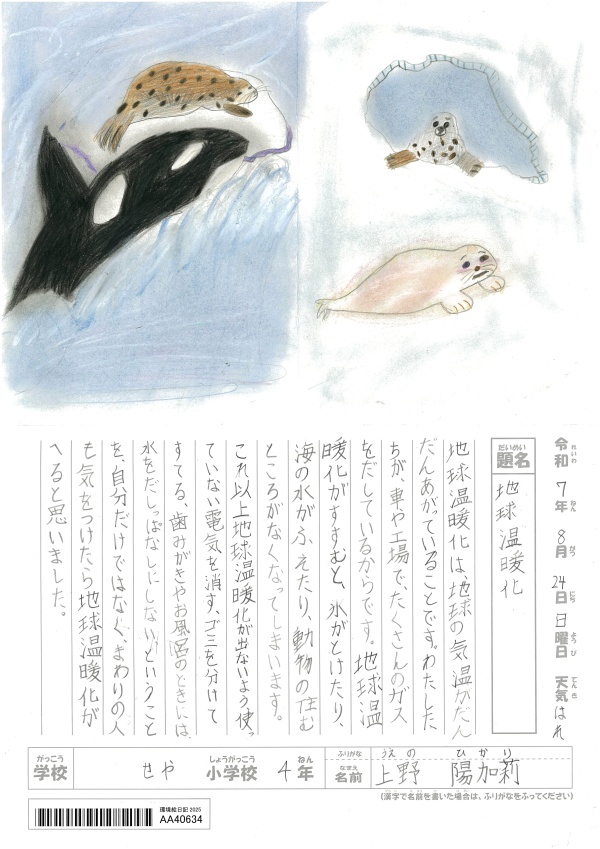 令和 れいわ 7年 ねん 8月 がつ 24日 にち 日曜日 ようび 天気 てんき はれ
題名 だいめい 地球温暖化
地球温暖化は地球の気温がだん
だんあがっていることです。わたした
ちが、車や工場でたくさんのガス
をだしているからです。地球温
暖化がすすむと、氷がとけたり、
海の水がふえたり、動物の住む
ところがなくなってしまいます。
これ以上地球温暖化が出ないよう使っ
ていない電気を消す、ゴミを分けて
すてる、歯みがきやお風呂のときには、
水をだしっぱなしにしない、ということ
を、自分だけではなく、まわりの人
も気をつけたら地球温暖化が
へると思いました。
学校 がっこう せや 小学校 しょうがっこう 4年 ねん
ふりがな うえの ひかり
名前 なまえ 上野 陽加莉
(漢字で名前を書いた場合は、ふりがなをふってください)
環境絵日記 2025
AA40634